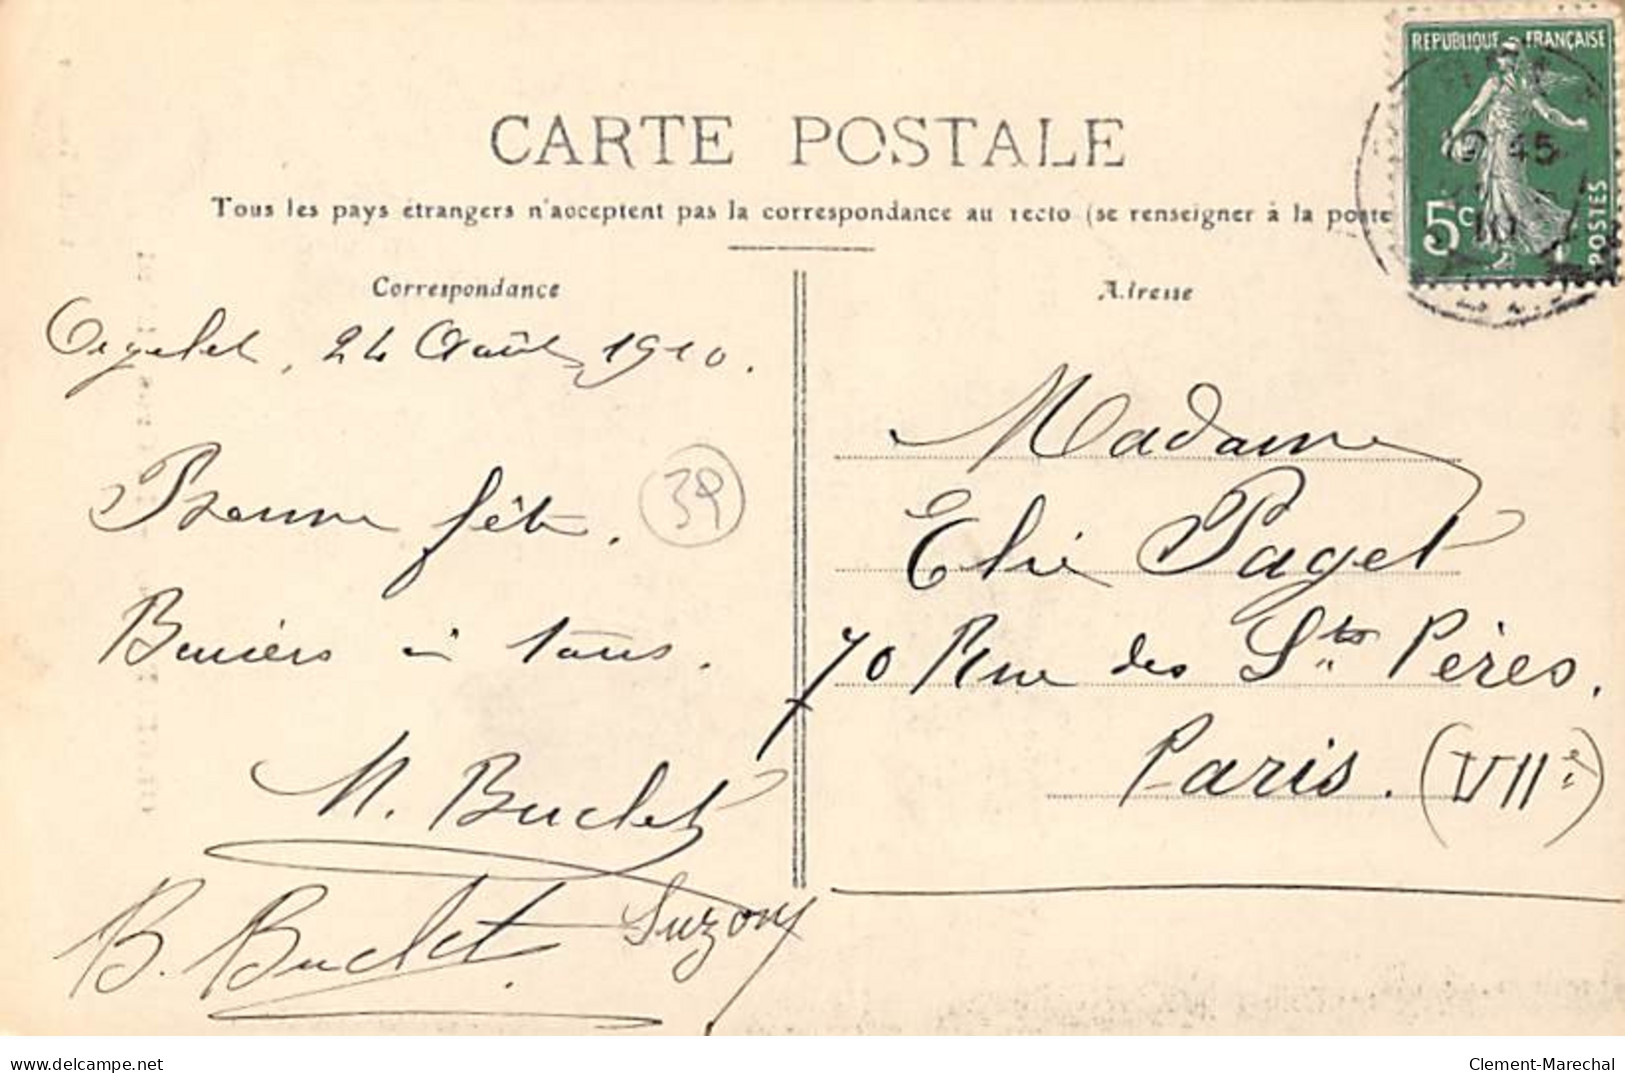 CARTE POSTALE
Tous les pays étrangers n'acceptent pas la correspondance au recto (se renseigner à la poste
REPUBLIQUE FRANÇAISE
5c POSTES
45
10
Correspondance
Orgelet, 24 Août 1910.
Bonne fête.
39
Baisers à tous.
M. Buclet
B. Buclet.
Suzon
Adresse
Madame
Elie Paget
70 Rue des Sts Pères,
Paris. (VIIe)
delcampe.net
Clement-Marechal